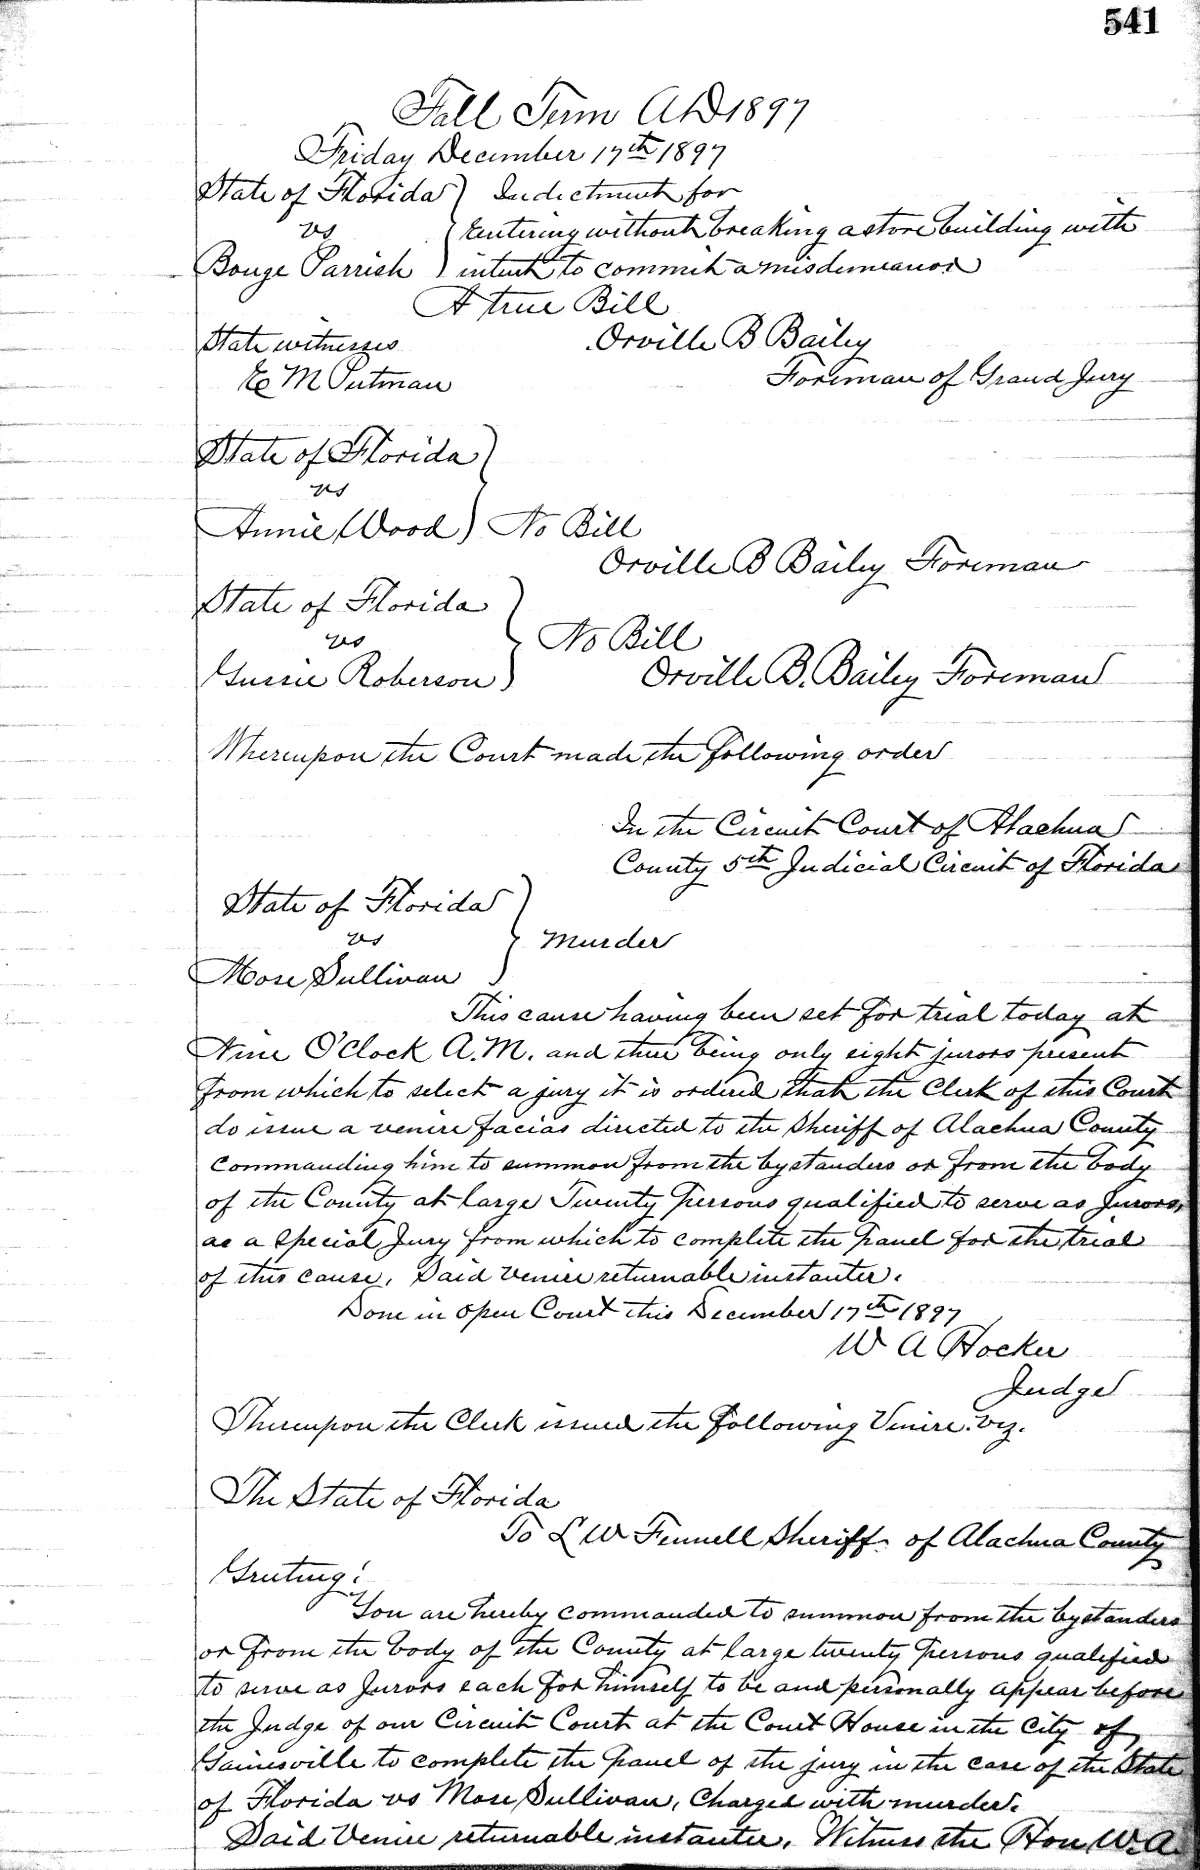 541
Fall Term A D 1897
Friday December 17th 1897
State of Florida } Indictment for
vs } Entering without breaking a store building with
Bouge Parrish } intent to commit a misdemeanor
A true Bill
State witnesses Orville B Bailey
E M Putman Foreman of Grand Jury
State of Florida }
vs
Annie Wood } No Bill
Orville B Bailey Foreman
State of Florida }
vs } No Bill
Gussie Roberson } Orville B. Bailey Foreman
Whereupon the Court made the following order
In the Circuit Court of Alachua
County 5th Judicial Circuit of Florida
State of Florida }
vs } Murder
Mose Sullivan
This cause having been set for trial today at
Nine O'Clock A.M. and there being only eight jurors present
from which to select a jury it is ordered that the Clerk of this Court
do issue a venire facias directed to the Sheriff of Alachua County
commanding him to summon from the bystanders or from the body
of the County at large Twenty Persons qualified to serve as Jurors,
as a Special Jury from which to complete the Panel for the trial
of this cause. Said Venire returnable instanter.
Done in open Court this December 17th 1897
W A Hocker
Judge
Thereupon the Clerk issued the following Venire. viz.
The State of Florida
To L W Fennell Sheriff. of Alachua County
Greeting:
You are hereby commanded to summon from the bystanders
or from the body of the County at large twenty Persons qualified
to serve as Jurors each for himself to be and personally appear before
the Judge of our Circuit Court at the Court House in the City of
Gainesville to complete the Panel of the jury in the case of the State
of Florida vs Mose Sullivan, Charged with murder.
Said Venire returnable instanter. Witness the Hon W.A.